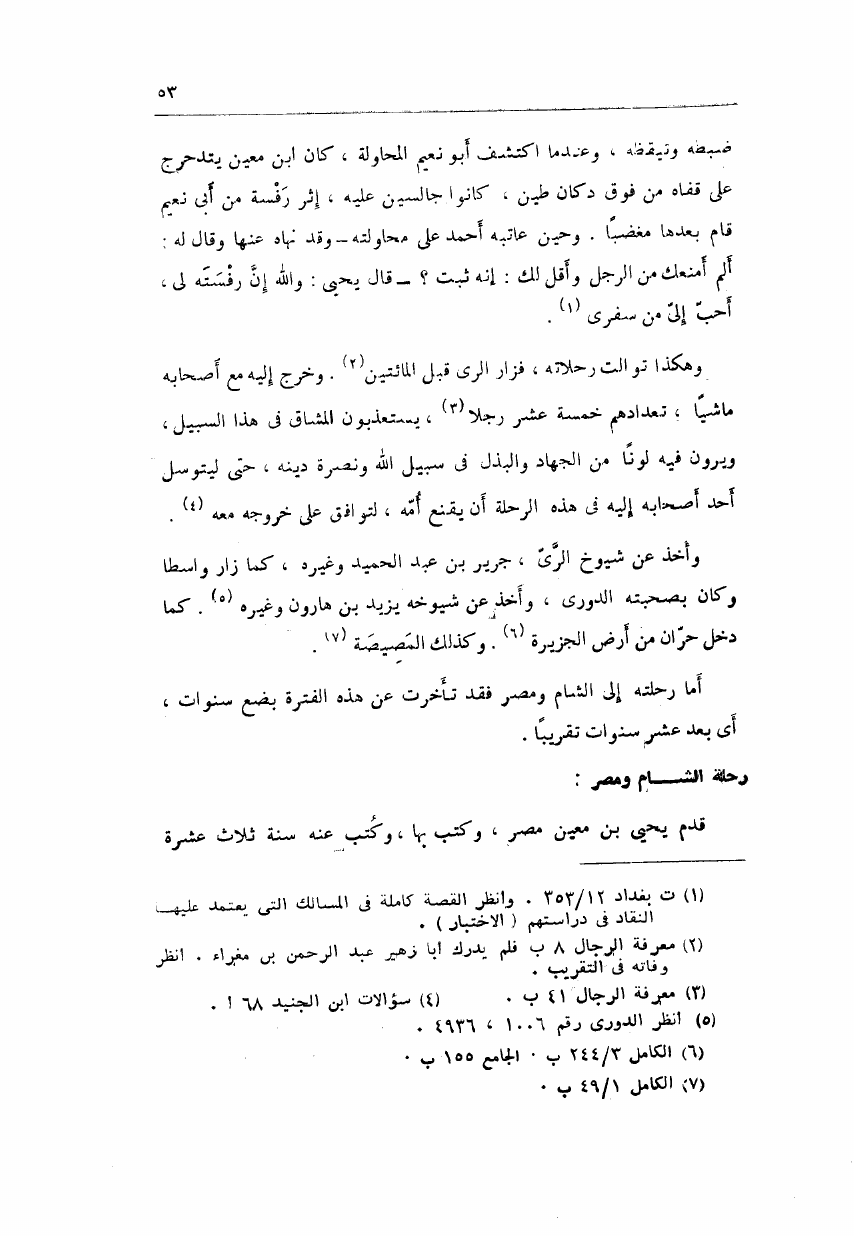 ٥٣
ضبطه وتيقظه ، وعندما اكتشف أبو نعيم المحاولة ، كان ابن معين يتدحرج
على قفاه من فوق دكان طين ، كانوا جالسين عليه ، إثر رَفْسة من أبى نعيم
قام بعدها مغضبًا . وحين عاتبه أحمد على محاولته – وقد نهاه عنها وقال له :
ألم أمنعك من الرجل وأقل لك : إنه ثبت ؟ – قال يحيى : والله إنَّ رفْسَتَه لى ،
أحبّ إلىّ من سفرى (١) .
وهكذا توالت رحلاته ، فزار الرى قبل المائتين (٢) . وخرج إليه مع أصحابه
ماشيًا ، تعدادهم خمسة عشر رجلا (٣) ، يستعذبون المشاق فى هذا السبيل ،
ويرون فيه لونًا من الجهاد والبذل فى سبيل الله ونصرة دينه ، حتى ليتوسل
أحد أصحابه إليه فى هذه الرحلة أن يقنع أُمّه ، لتوافق على خروجه معه (٤) .
وأخذ عن شيوخ الرَّىّ ، جرير بن عبد الحميد وغيره ، كما زار واسطا
وكان بصحبته الدورى ، وأخذ عن شيوخه يزيد بن هارون وغيره (٥) . كما
دخل حرّان من أرض الجزيرة (٦) . وكذلك المَصِيصَة (٧) .
أما رحلته إلى الشام ومصر فقد تأخرت عن هذه الفترة بضع سنوات ،
أى بعد عشر سنوات تقريبًا .
رحلة الشـــام ومصر :
قدم يحيى بن معين مصر ، وكتب بها ، وكُتب عنه سنة ثلاث عشرة
(١) ت بغداد ٣٥٣/١٢ . وانظر القصة كاملة فى المسالك التى يعتمد عليهـــا
النقاد فى دراستهم ( الاختبار ) .
(٢) معرفة الرجال ٨ ب فلم يدرك أبا زهير عبد الرحمن بن مغراء . انظر
وفاته فى التقريب .
(٣) معرفة الرجال ٤١ ب . (٤) سؤالات ابن الجنيد ٦٨ أ .
(٥) انظر الدورى رقم ١٠٠٦ ، ٤٩٣٦ .
(٦) الكامل ٢٤٤/٣ ب . الجامع ١٥٥ ب .
(٧) الكامل ٤٩/١ ب .